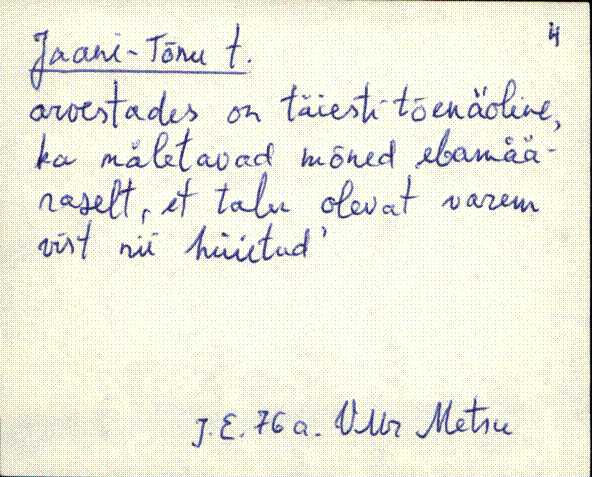 4
Jaani-Tõnu t.
arvestades on täiesti tõenäoline,
ka mäletavad mõned ebamää-
raselt, et talu olevat varem
vist nii hüütud'
J. E. 76 a. VMr Metsu